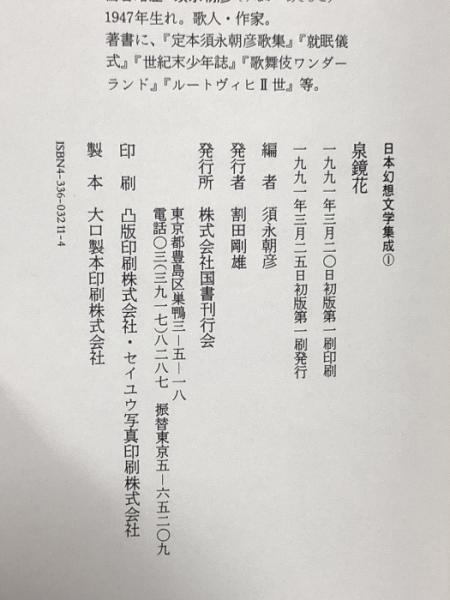 1947年生れ。歌人・作家。
著書に、『定本須永朝彦歌集』『就眠儀
式』『世紀末少年誌』『歌舞伎ワンダー
ランド』『ルートヴィヒⅡ世』等。
日本幻想文学集成①
泉鏡花
一九九一年三月二〇日初版第一刷印刷
一九九一年三月二五日初版第一刷発行
編者 須永朝彦
発行者 割田剛雄
発行所 株式会社国書刊行会
東京都豊島区巣鴨三―五―一八
電話〇三(三九一七)八二八七 振替東京五―六五二〇九
印刷 凸版印刷株式会社・セイユウ写真印刷株式会社
製本 大口製本印刷株式会社
ISBN4-336-03211-4